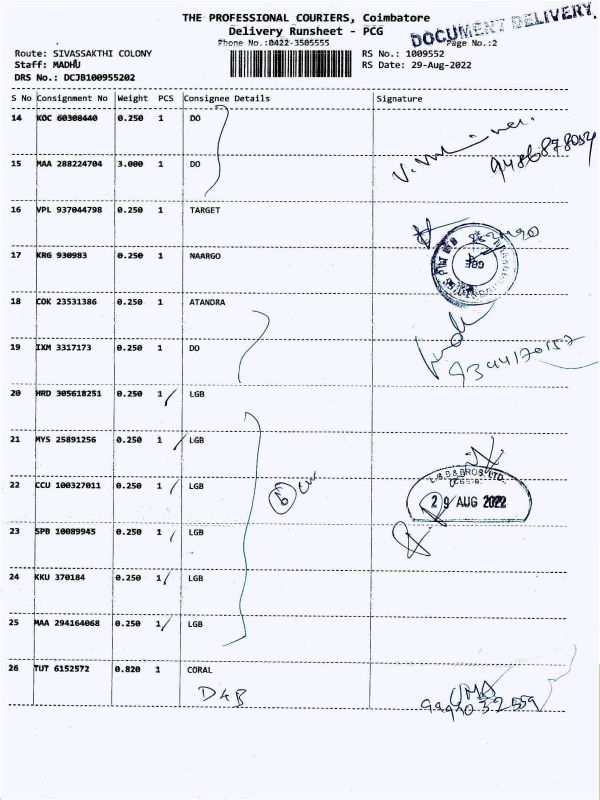 THE PROFESSIONAL COURIERS, Coimbatore
Delivery Runsheet - PCG
DOCUMENT DELIVERY.
Phone No.:0422-3505555
Page No.:2
Route: SIVASSAKTHI COLONY
RS No.: 1009552
Staff: MADHU
RS Date: 29-Aug-2022
DRS No.: DCJB100955202
S No Consignment No Weight PCS Consignee Details Signature
14 KOC 60308440 0.250 1 DO
15 MAA 288224704 3.000 1 DO
9486878054
16 VPL 937044798 0.250 1 TARGET
17 KRG 930983 0.250 1 NAARGO
CBE
18 COK 23531386 0.250 1 ATANDRA
19 IXM 3317173 0.250 1 DO
9344170157
20 HRD 305618251 0.250 1 LGB
21 MYS 25891256 0.250 1 LGB
22 CCU 100327011 0.250 1 LGB
6
L.G.B & BROS. LTD.
CBE-6.
29 AUG 2022
23 SPB 10089945 0.250 1 LGB
24 KKU 370184 0.250 1 LGB
25 MAA 294164068 0.250 1 LGB
26 TUT 6152572 0.820 1 CORAL
UMA